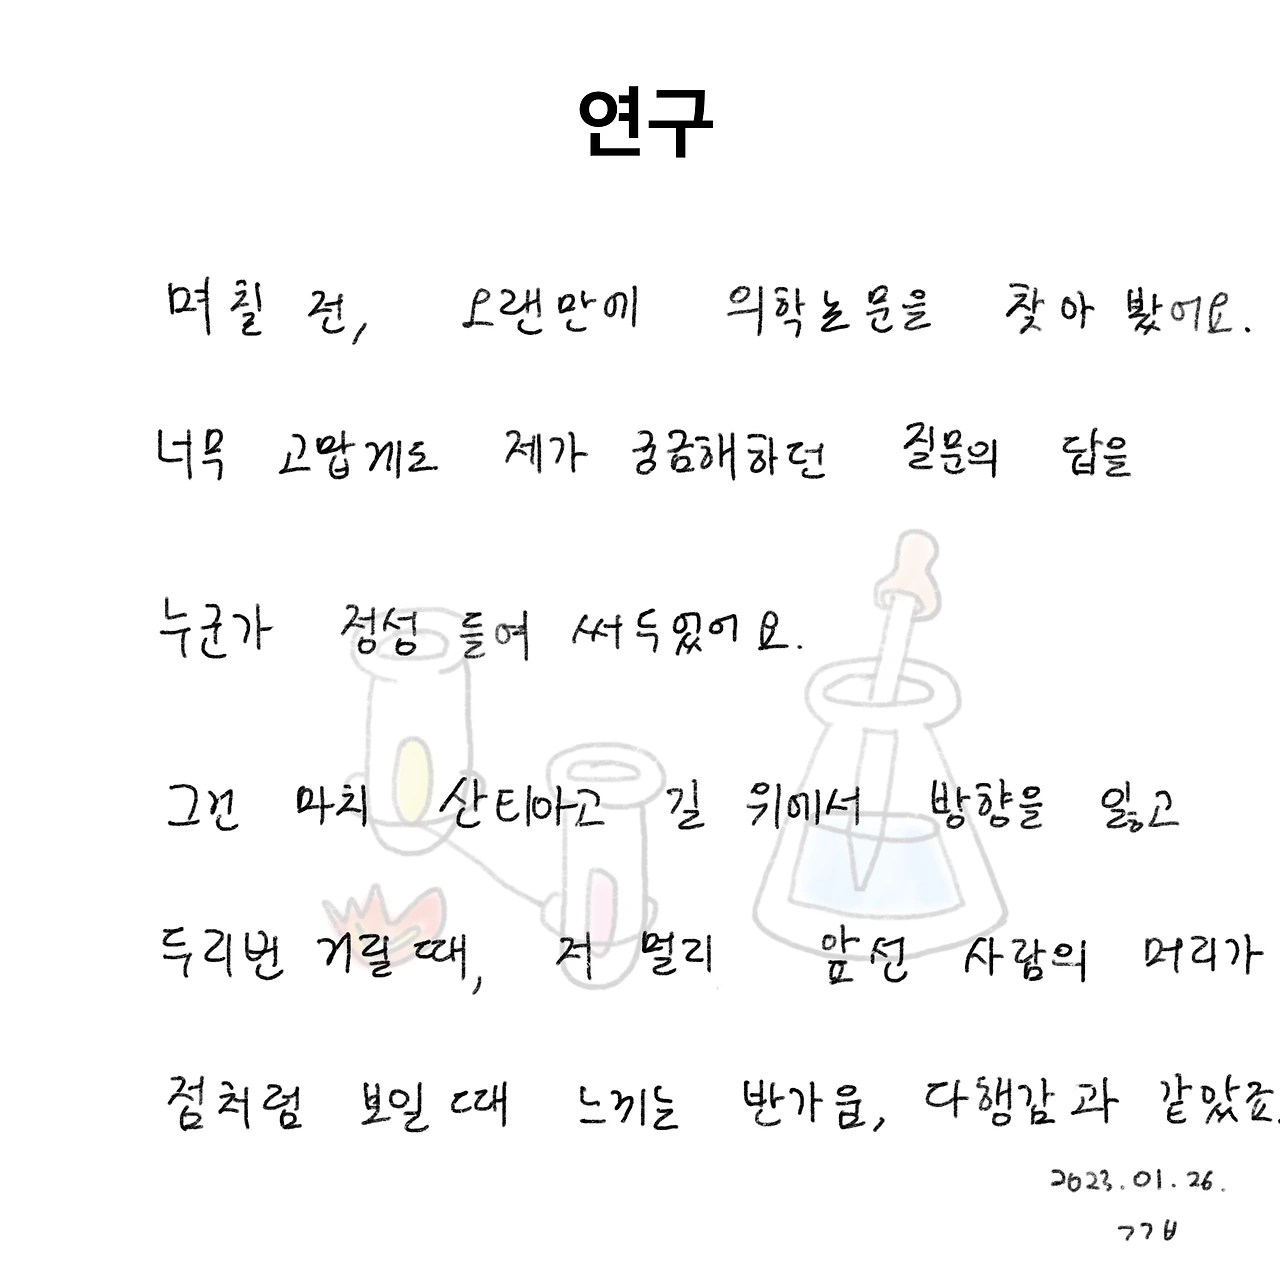 연구
며칠 전, 오랜만에 의학논문을 찾아 봤어요.
너무 고맙게도 제가 궁금해하던 질문의 답을
누군가 정성 들여 써두었어요.
그건 마치 산티아고 길 위에서 방향을 잃고
두리번 거릴 때, 저 멀리 앞선 사람의 머리가
점처럼 보일 때 느끼는 반가움, 다행감과 같았죠.
2023.01.26.
ㄱㄱㅂ